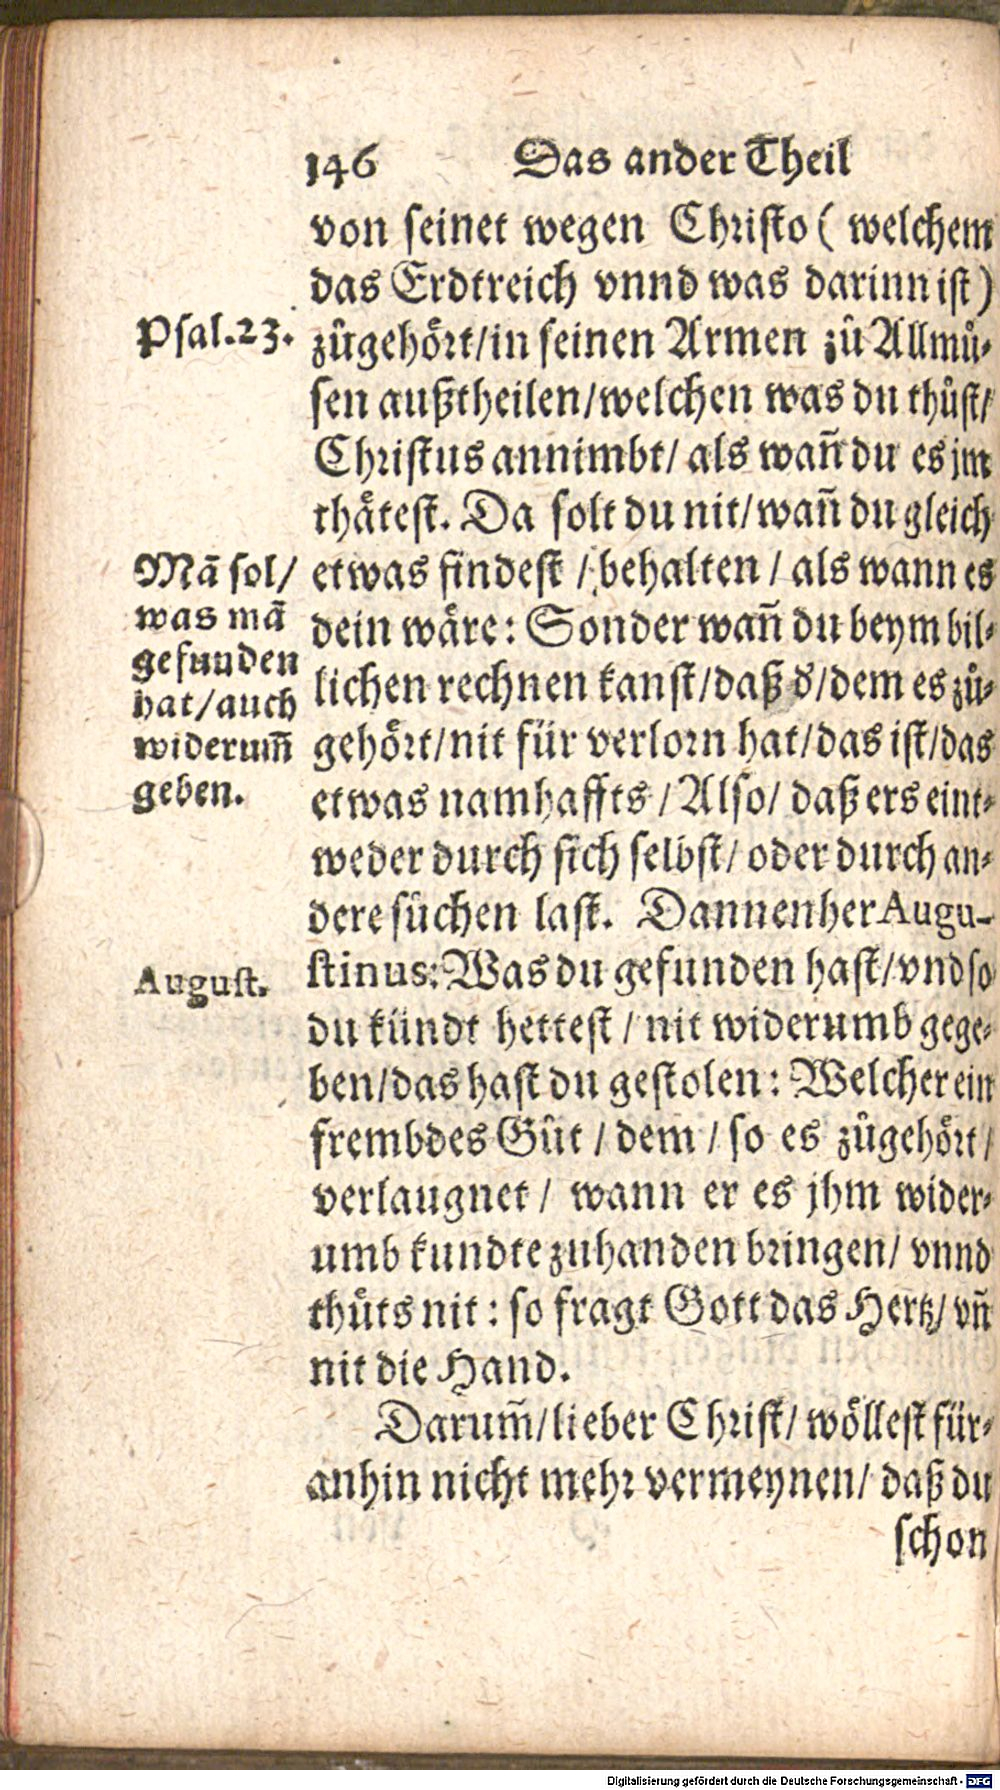 146 Das ander Theil
von seinet wegen Christo ( welchem
das Erdtreich vnnd was darinn ist )
Psal.23.
zůgehört/in seinen Armen zů Allmů-
sen außtheilen/welchen was du thůst/
Christus annimbt/ als wañ du es jm
thätest. Da solt du nit/wañ du gleich
Mã sol/
was mã
gefunden
hat/auch
widerum̃
geben.
etwas findest / behalten / als wann es
dein wäre: Sonder wañ du beym bil-
lichen rechnen kanst/daß d'/dem es zů-
gehört/nit für verlorn hat/das ist/das
etwas namhaffts / Also/ daß ers eint-
weder durch sich selbst/ oder durch an-
dere sůchen last. Dannenher Augu-
August.
stinus: Was du gefunden hast/vnd so
du kündt hettest / nit widerumb gege-
ben/das hast du gestolen: Welcher ein
frembdes Gůt / dem / so es zůgehört /
verlaugnet / wann er es jhm wider-
umb kundte zuhanden bringen/ vnnd
thůts nit : so fragt Gott das Hertz/ vñ
nit die Hand.
Darum̃/lieber Christ/ wöllest für-
anhin nicht mehr vermeynen/ daß du
schon
Digitalisierung gefördert durch die Deutsche Forschungsgemeinschaft - DFG